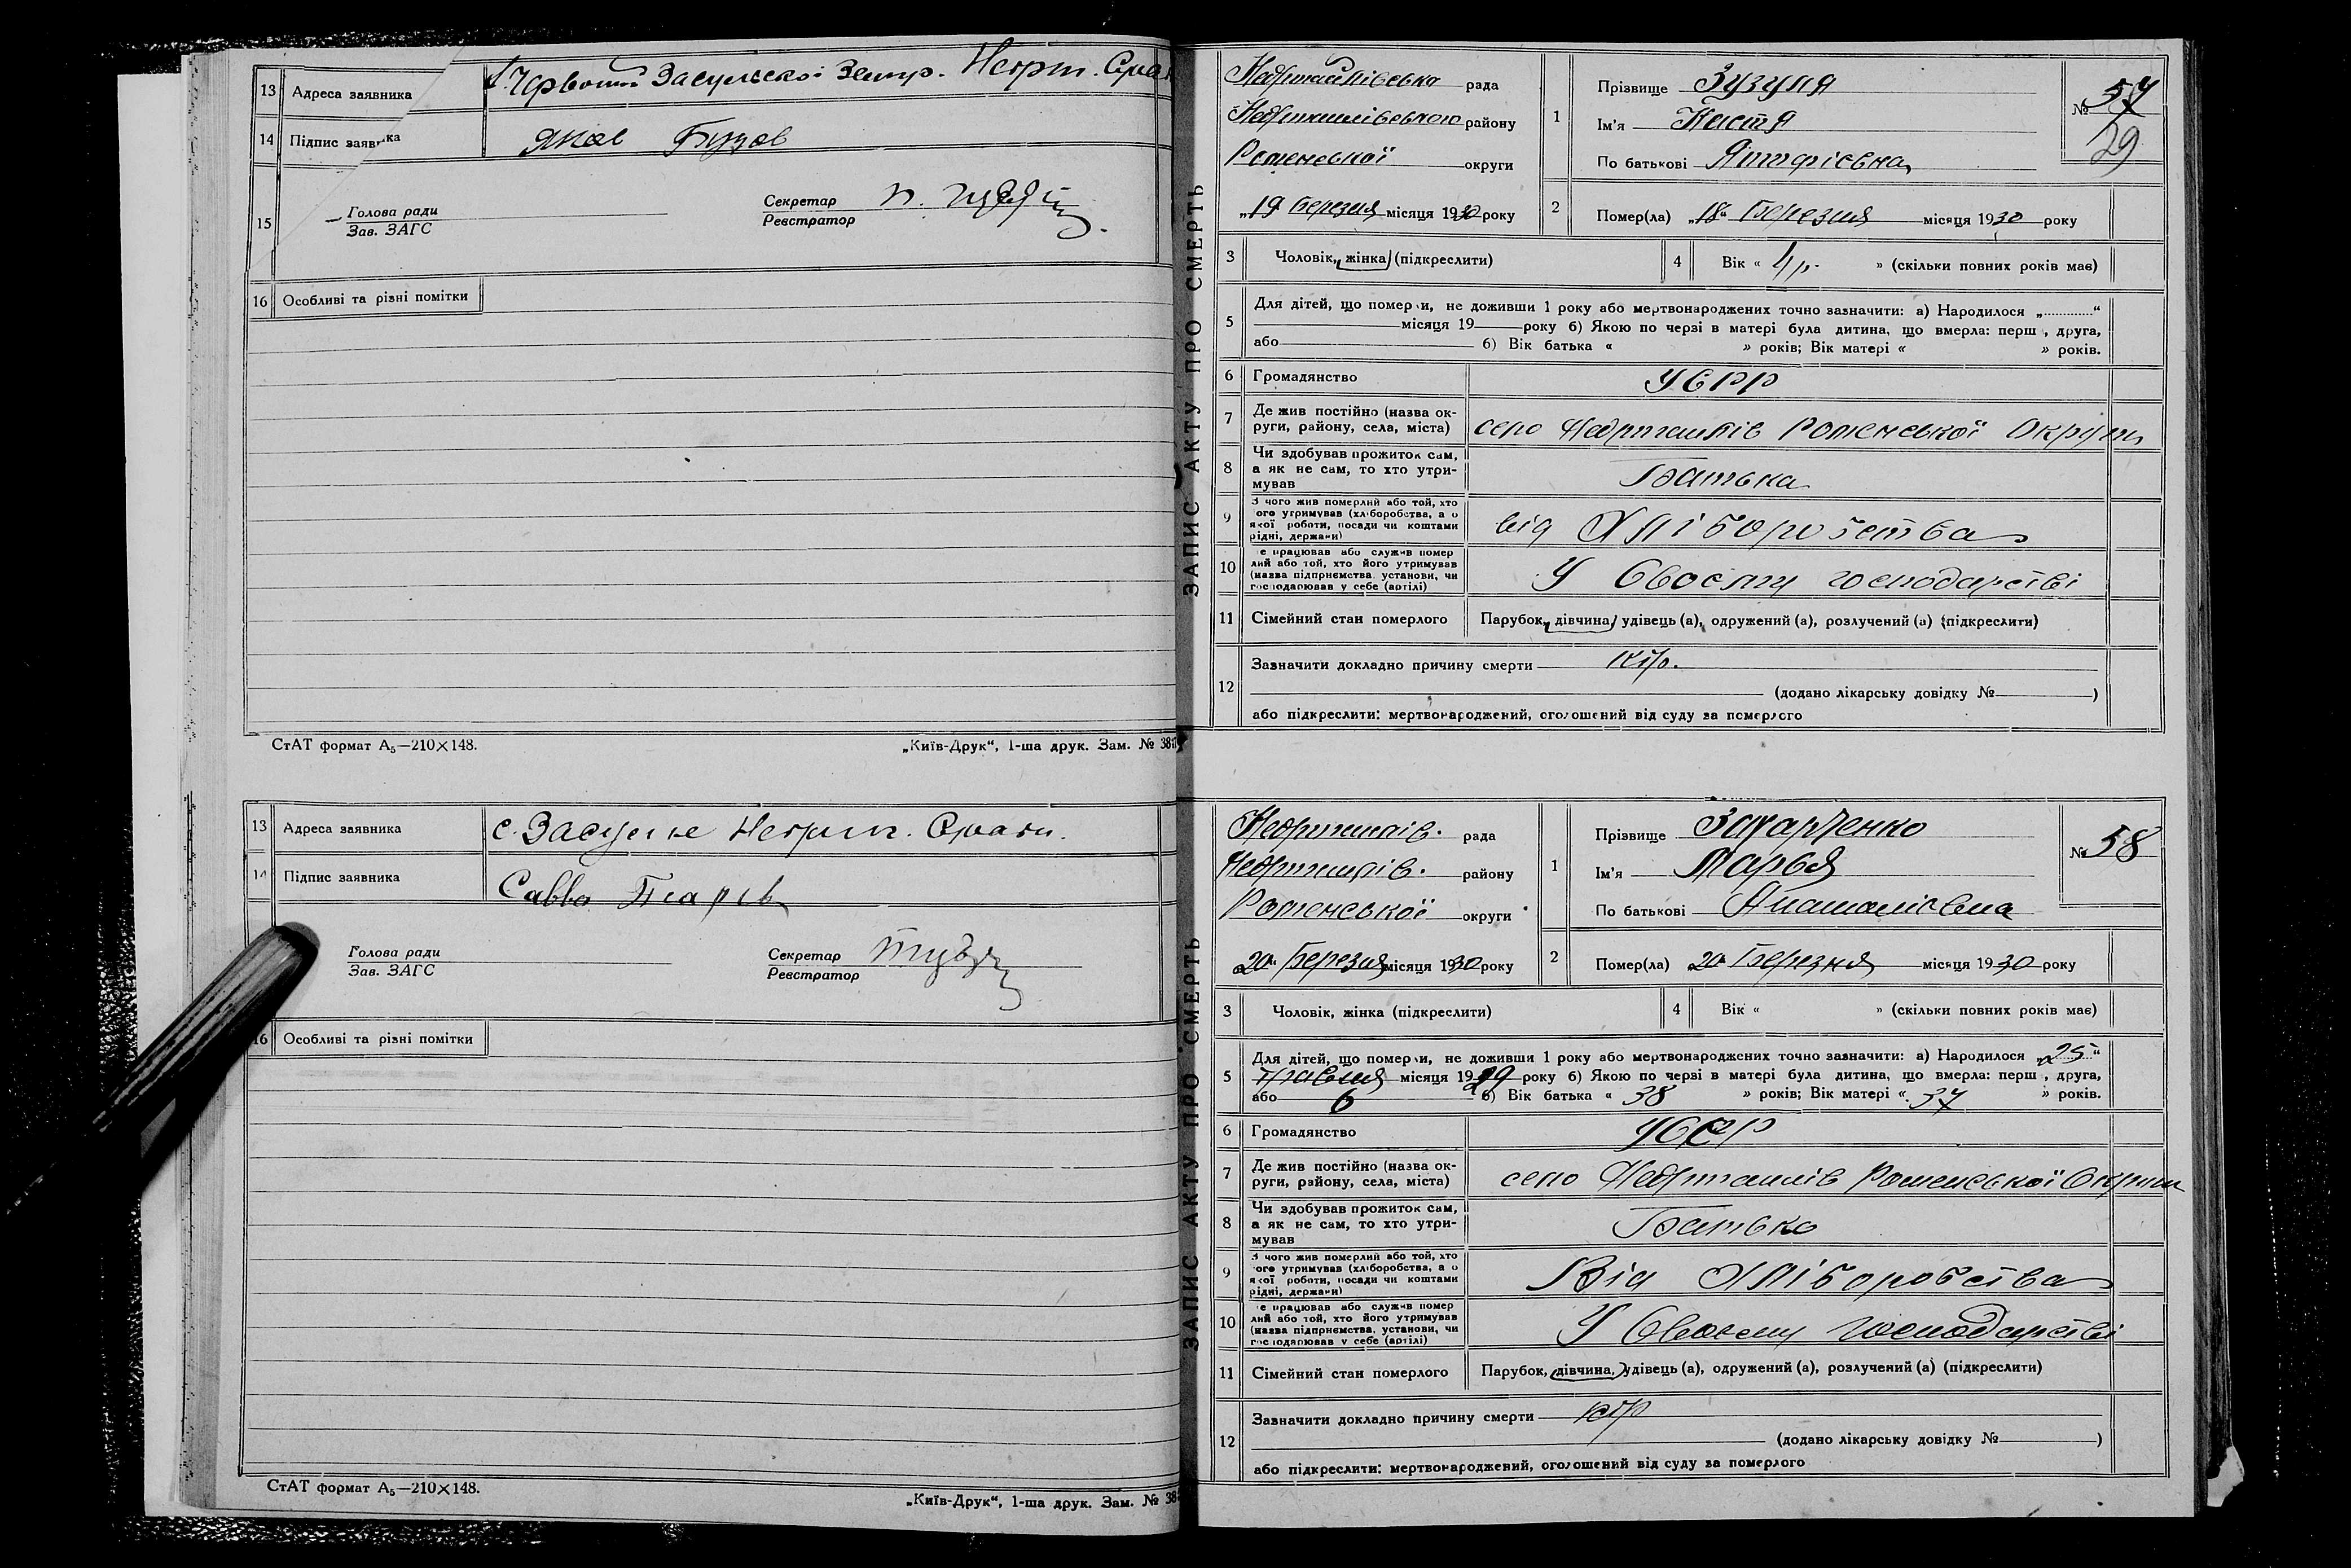 13 Адреса заявника
14 Підпис заявника Яков Бузов
15 Голова ради
Зав. ЗАГС
Секретар
Реєстратор
16 Особливі та різні помітки
СтАТ формат А₅—210×148.
„Київ-Друк“, 1-ша друк. Зам. № 38
13 Адреса заявника с. Засулье
14 Підпис заявника Савва
Голова ради
Зав. ЗАГС
Секретар
Реєстратор
16 Особливі та різні помітки
СтАТ формат А₅—210×148.
„Київ-Друк“, 1-ша друк. Зам. № 38
ЗАПИС АКТУ ПРО СМЕРТЬ
Недригайлівська рада
Недригайлівського району
Роменської округи
„19 березня місяця 1930 року
1 Прізвище Зузуля
Ім'я Настя
По батькові
№ 57
29
2 Помер(ла) „18“ Березня місяця 1930 року
3 Чоловік, жінка (підкреслити)
4 Вік « 4 р. » (скільки повних років має)
5 Для дітей, що померли, не доживши 1 року або мертвонароджених точно зазначити: а) Народилося „............“
місяця 19 року б) Якою по черзі в матері була дитина, що вмерла: перш , друга,
або б) Вік батька « » років; Вік матері « » років.
6 Громадянство УСРР
7 Де жив постійно (назва ок-
руги, району, села, міста) село Недригайлів Роменської Округи
8 Чи здобував прожиток сам,
а як не сам, то хто утри-
мував Батька
9 З чого жив померлий або той, хто
ого утримував (хліборобства, а о
якої роботи, посади чи коштами
рідні, держави) від Хліборобства
10 е працював або служив помер
лий або той, хто його утримував
(назва підприємства, установи, чи
господарював у себе (артілі) У Своєму господарстві
11 Сімейний стан померлого Парубок, дівчина, удівець (а), одружений (а), розлучений (а) (підкреслити)
12 Зазначити докладно причину смерти кір.
(додано лікарську довідку № )
або підкреслити: мертвонароджений, оголошений від суду за померлого
ЗАПИС АКТУ ПРО СМЕРТЬ
Недригайлів. рада
Недригайлів. району
Роменської округи
„20“ Березня місяця 1930 року
1 Прізвище Захарченко
Ім'я Марья
По батькові
№ 58
2 Помер(ла) „20“ Березня місяця 1930 року
3 Чоловік, жінка (підкреслити)
4 Вік « » (скільки повних років має)
5 Для дітей, що померли, не доживши 1 року або мертвонароджених точно зазначити: а) Народилося „25“
травня місяця 1929 року б) Якою по черзі в матері була дитина, що вмерла: перш , друга,
або 6 б) Вік батька « 38 » років; Вік матері « 37 » років.
6 Громадянство УСРР
7 Де жив постійно (назва ок-
руги, району, села, міста) село Недригайлів Роменської Округи
8 Чи здобував прожиток сам,
а як не сам, то хто утри-
мував Батько
9 З чого жив померлий або той, хто
ого утримував (хліборобства, а о
якої роботи, посади чи коштами
рідні, держави) Від Хліборобства
10 е працював або служив помер
лий або той, хто його утримував
(назва підприємства, установи, чи
господарював у себе (артілі) У Своєму господарстві
11 Сімейний стан померлого Парубок, дівчина, удівець (а), одружений (а), розлучений (а) (підкреслити)
12 Зазначити докладно причину смерти кір
(додано лікарську довідку № )
або підкреслити: мертвонароджений, оголошений від суду за померлого